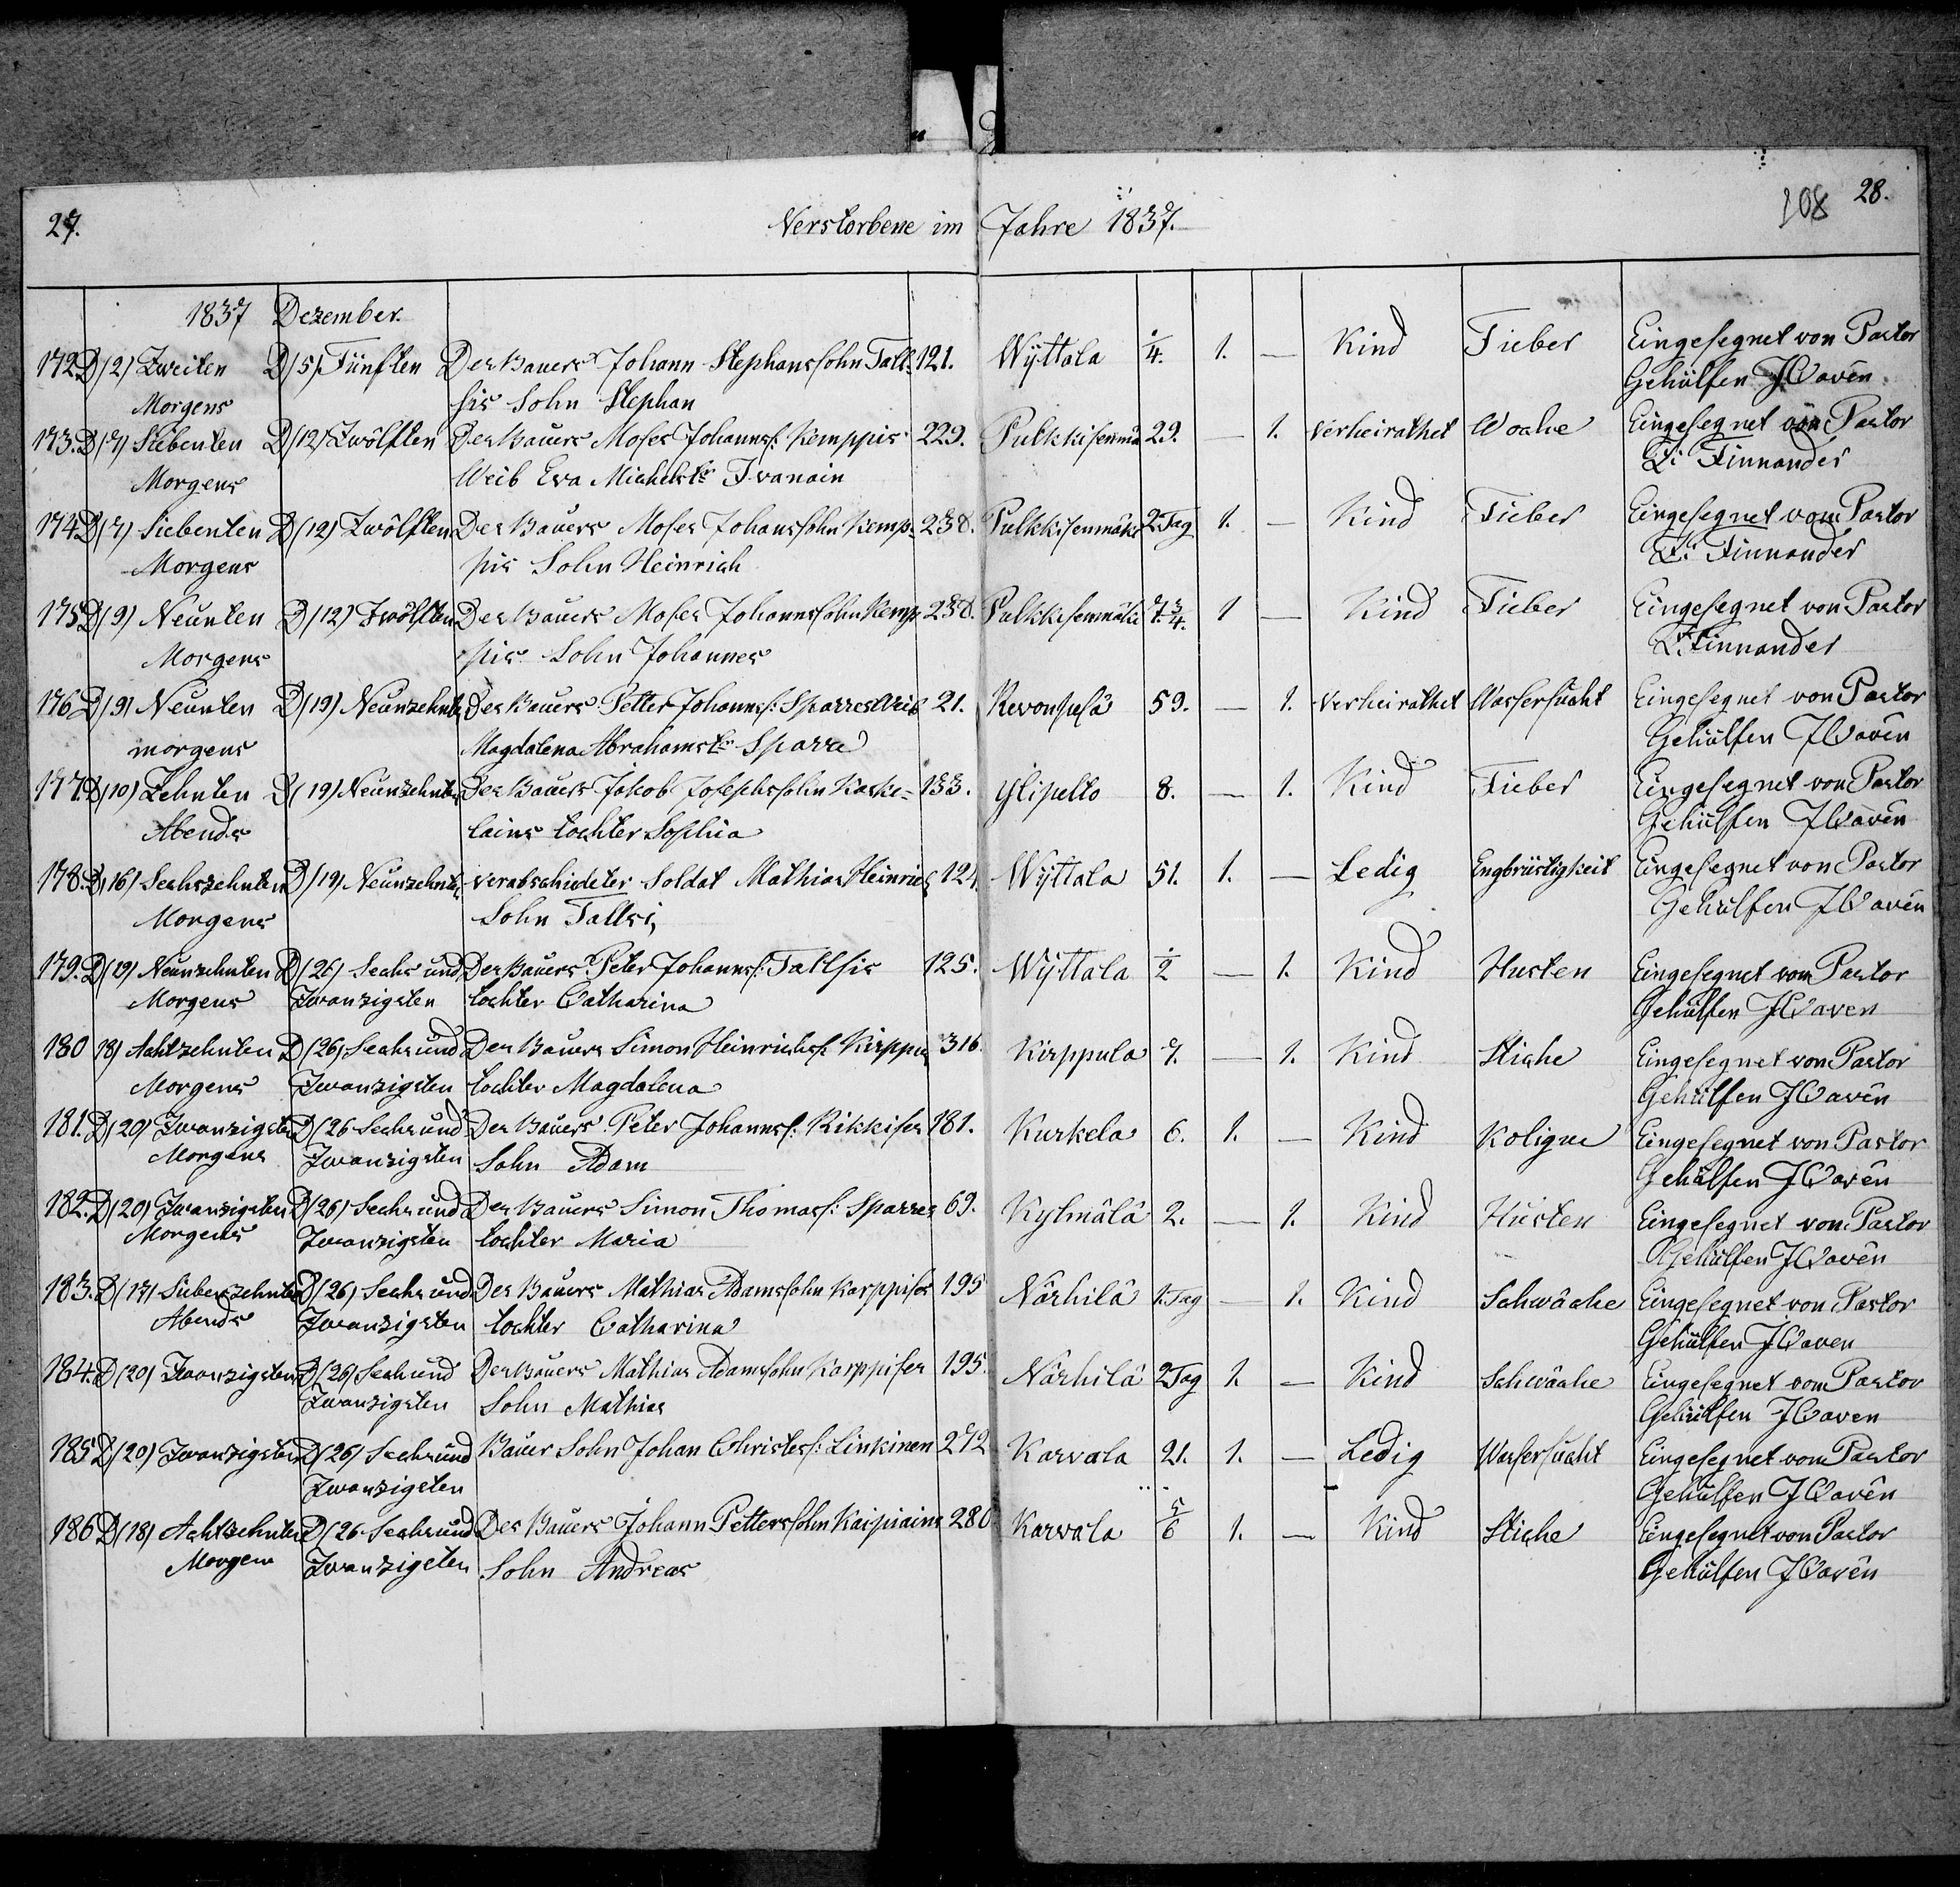 27.
Verstorbene im Jahre 1837.
108 28.
1837 Dezember.
172 D(2) Zweiten D(5) Fünften Des Bauers Johann Stephanssohn Tall- 121. Wyttala 1/4. 1. — Kind Fieber Eingesegnet von Pastor
Morgens sis Sohn Stephan Gehülfen J Cavén
173. D(7) Siebenten D(12) Zwölften Des Bauers Moses Johannsf: Kemppis 229. Pulkkisenmä 29. — 1. Verheirathet Woche Eingesegnet von Pastor
Morgens Weib Eva Michelstr Ivanain Finnander
174 D(7) Siebenten D(12) Zwölften Des Bauers Moses Johanssohn Kemp- 238. Pulkkisenmäki 2 Tag 1. — Kind Fieber Eingesegnet vom Pastor
Morgens pis Sohn Heinrich Finnander
175 D(9) Neunten D(12) Zwölften Des Bauers Moses Johannssohn Kemp 238. Pulkkisenmäki 7.3/4. 1 — Kind Fieber Eingesegnet von Pastor
Morgens pis Sohn Johannes Finnander
176 D(9) Neunten D(19) Neunzehnten Des Bauers Petter Johannsf: Sparres Weib 21. 59. — 1. Verheirathet Wassersucht Eingesegnet von Pastor
morgens Magdalena Abrahamstr Sparre Gehülfen J Cavén
177. D(10) Zehnten D(19) Neunzehnten Des Bauers Jakob Josephssohn Kaske- 133. Ylipelto 8. — 1. Kind Fieber Eingesegnet von Pastor
Abends lains tochter Sophia Gehülfen J Cavén
178. D(16) Sechszehnten D(19) Neunzehnten verabschideter Soldat Mathias Heinrich 124. Wyttala 51. 1. — Ledig Engbrüstigkeit Eingesegnet von Pastor
Morgens Sohn Tallsi Gehülfen J Cavén
179. D(19) Neunzehnten D(26) Sechs und Des Bauers Peter Johannsf: Tallsis 125. Wyttala 1/2 — 1. Kind Husten Eingesegnet vom Pastor
Morgens Zwanzigsten tochter Catharina Gehülfen J Caven
180 18) Achtzehnten D(26) Sechs und Des Bauers Simon Heinrichsf: Kirppus 316. Kirppula 7. — 1. Kind Stiche Eingesegnet von Pastor
Morgens Zwanzigsten tochter Magdalena Gehülfen J Cavén
181. D(20) Zwanzigsten D(26 Sechs und Des Bauers Peter Johannsf: Rikkises 181. Kurkela 6. 1. — Kind Kolique Eingesegnet von Pastor
Morgens Zwanzigsten Sohn Adam Gehülfen J Cavén
182. D(20) Zwanzigsten D(26) Sechs und Des Bauers Simon Thomasf: Sparres 69. Kylmälä 2. — 1. Kind Husten Eingesegnet von Pastor
Morgens Zwanzigsten tochter Maria Gehülfen J Cavén
183. D(17) Siebenzehnten D(26) Sechs und Des Bauers Mathias Adamssohn Karppises 195 Närhilä 1. Tag — 1. Kind Schwäche Eingesegnet von Pastor
Abends Zwanzigsten tochter Catharina Gehülfen J Caven
184. D(20) Zwanzigsten D(26) Sechs und Des Bauers Mathias Adamssohn Karppises 195. Närhilä 2 Tag 1. — Kind Schwäche Eingesegnet vom Pastor
Zwanzigsten Sohn Mathias Gehülfen J Caven
185 D(20) Zwanzigsten D(26) Sechs und Bauer Sohn Johan Christesf: Linkinen 272 Karvala 21. 1. — Ledig Wasersucht Eingesegnet vom Pastor
Zwanzigsten Gehülfen J Cavén
186 D(18) Achtzehnten D(26 Sechs und Des Bauers Johann Petterssohn Kaipiains 280 Karvala 5/6 1. — Kind Stiche Eingesegnet von Pastor
Morgens Zwanzigsten Sohn Andreas Gehülfen J Cavén